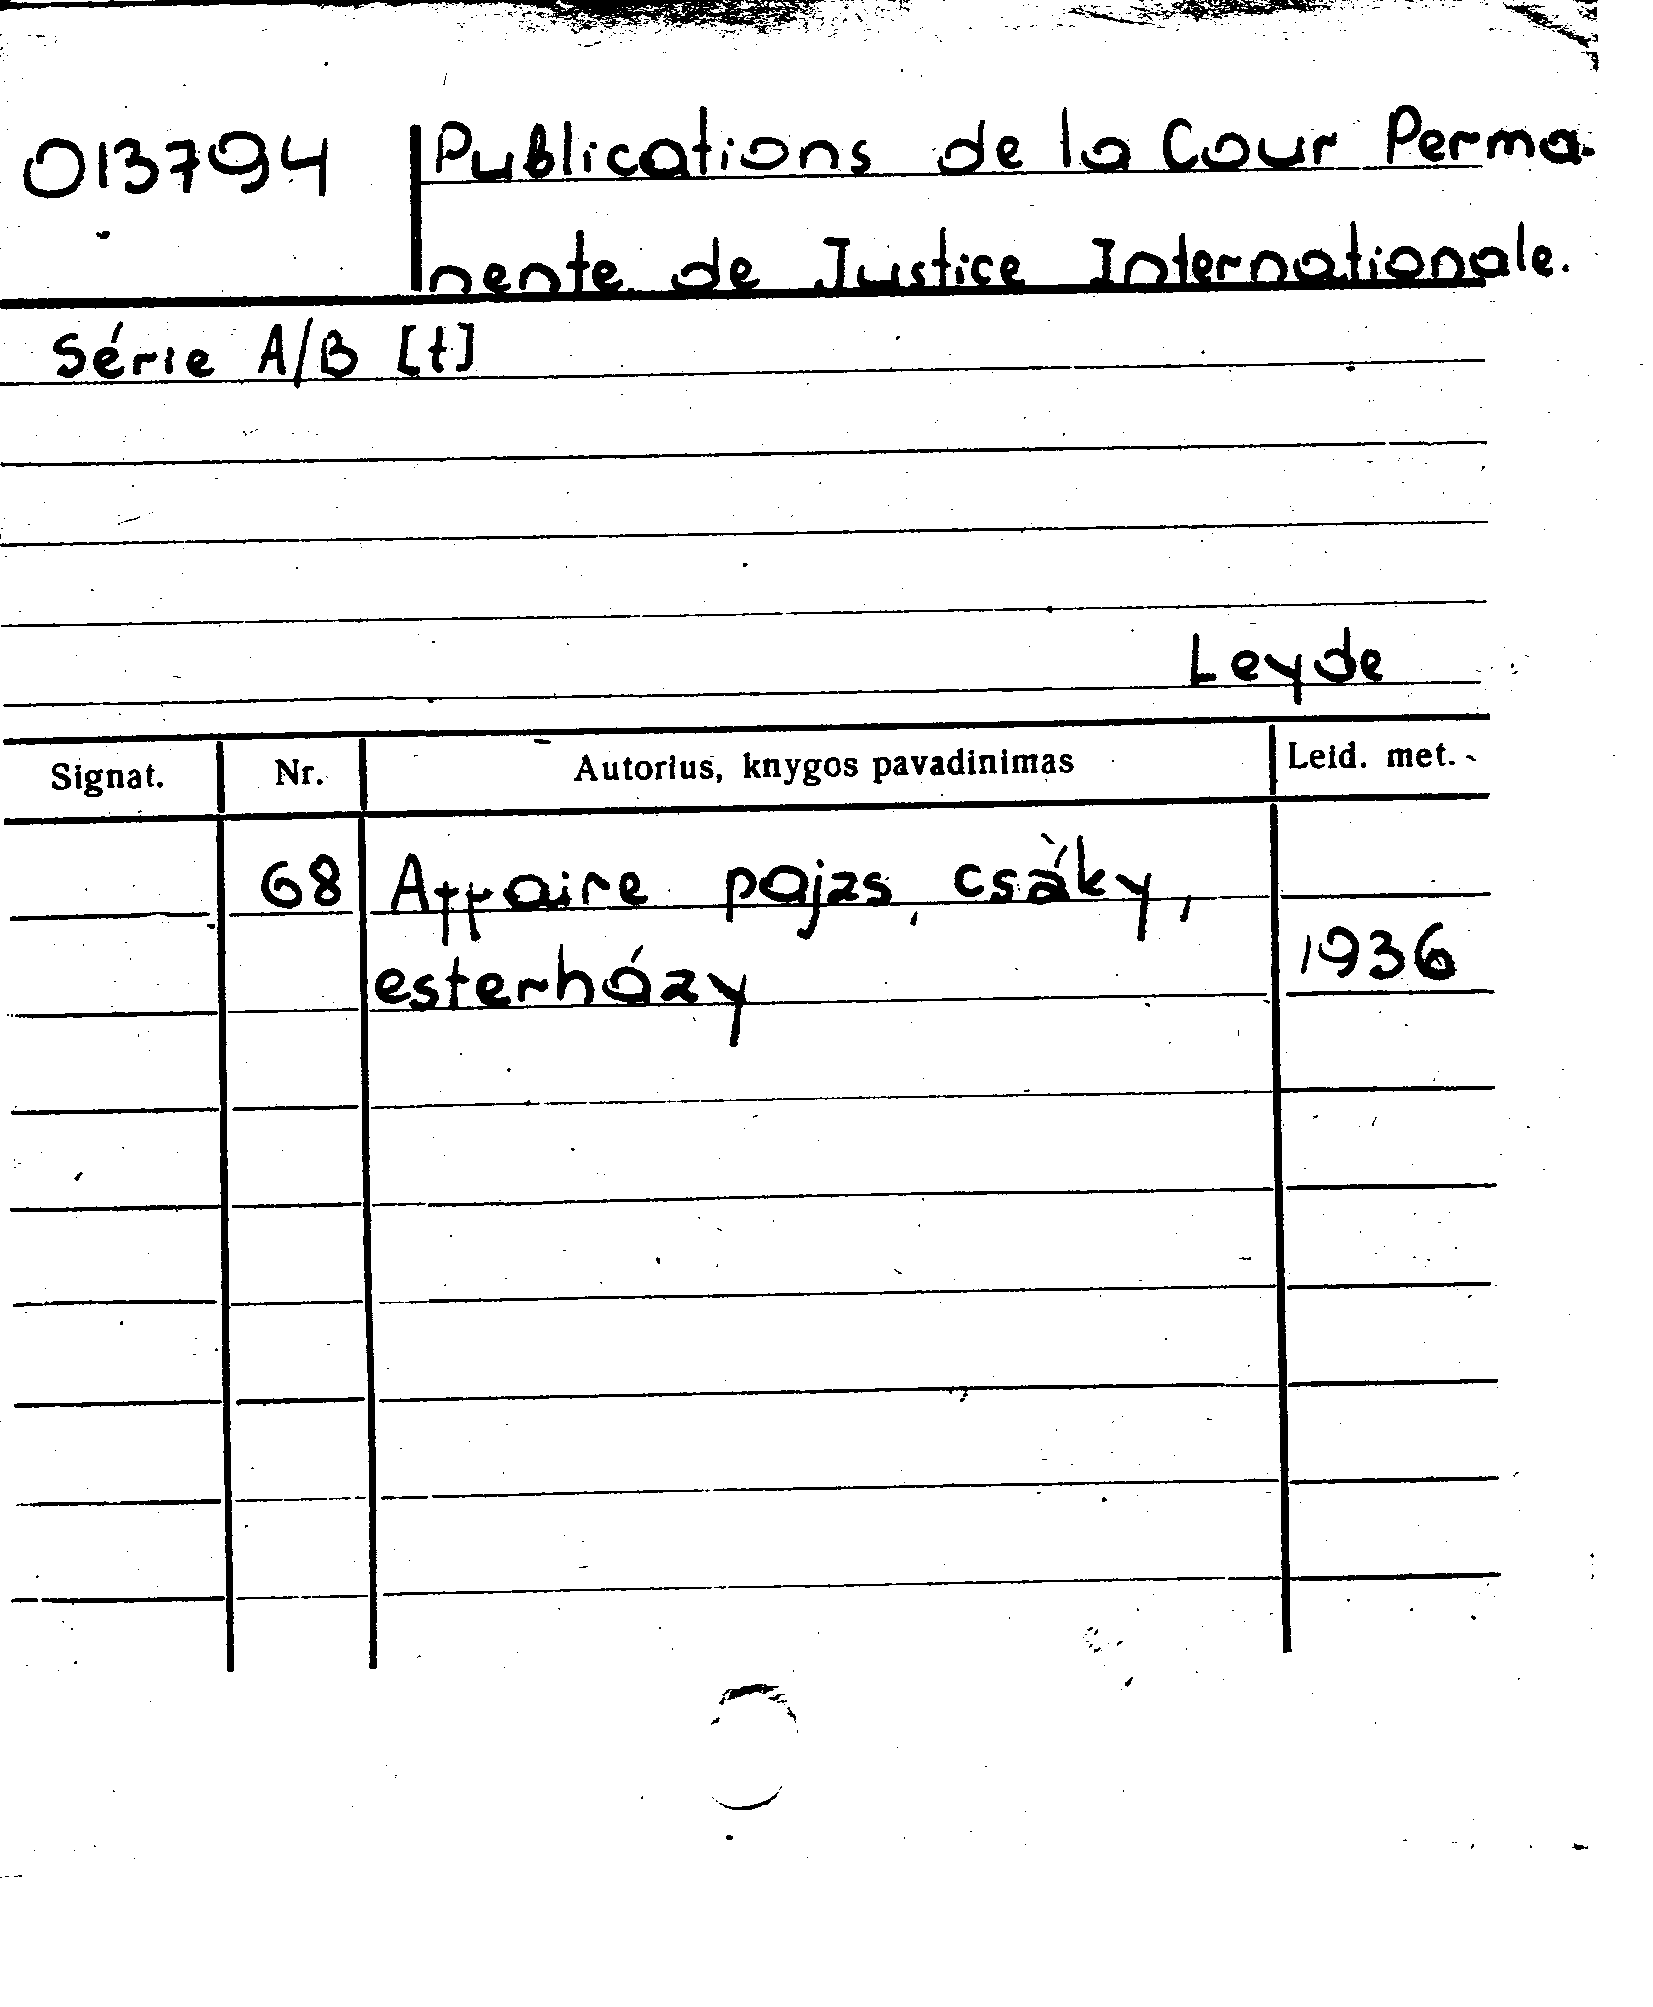 013794 Publications de la Cour Perma-
nente de Justice Internationale.
Série A/B [t]
Leyde
Signat. Nr. Autorius, knygos pavadinimas Leid. met.
68 Affaire pajzs, csáky,
esterházy 1936